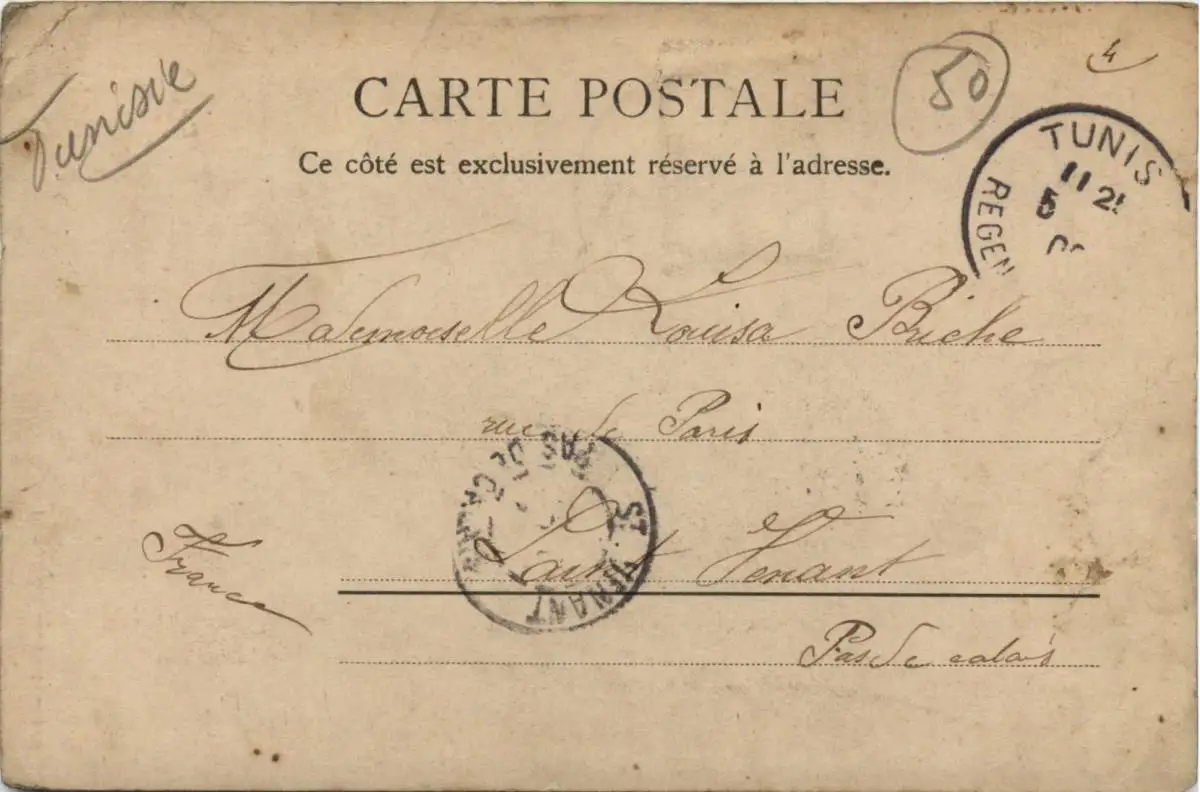 Tunisie
50
4
CARTE POSTALE
Ce côté est exclusivement réservé à l'adresse.
TUNIS
11 2
5
REGEN
Mademoiselle Louisa Briche
rue de Paris
ST VENANT
PAS DE CALAIS
Saint Venant
France
Pas de calais